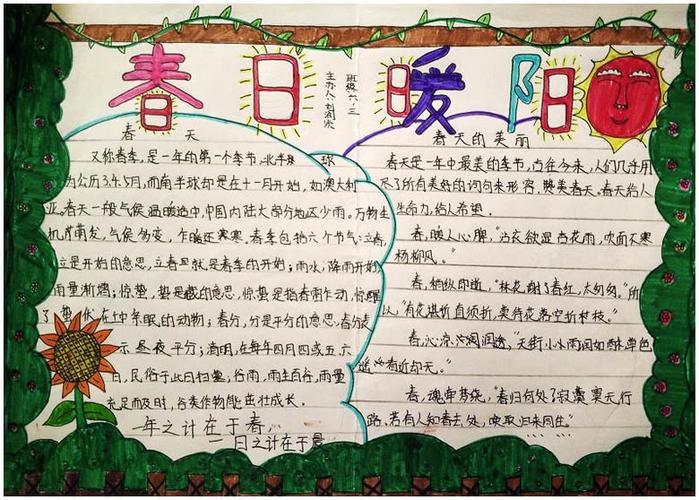 春日暖阳
班级:六、三
主办人:刘润泼
春天
又称春季,是一年的第一个季节,北半球
为公历3.4.5月,而南半球却是在十一月开始,如澳大利
亚。春天一般气候温暖适中,中国内陆大部分地区少雨。万物生
机芽萌发,气候多变,乍暖还寒。春季包括六个节气:立春,
立是开始的意思,立春是就是春季的开始;雨水,降雨开始
雨量渐增;惊蛰,蛰是藏的意思,惊蛰是指春雷乍动,惊醒
了蛰伏在土中冬眠的动物;春分,分是平分的意思,春分
示昼夜平分;清明,在每年四月四或五六
日,民俗于此日扫墓,谷雨,雨生百谷,雨量
充足而及时,谷类作物能茁壮成长。
一年之计在于春
一日之计在于晨
春天的美丽
春天是一年中最美的季节,古往今来,人们几乎用
尽了所有美好的词句来形容,赞美春天。春天给人
生命力,给人希望。
春,暖人心脾,"沾衣欲湿杏花雨,吹面不寒
杨柳风。"
春,稍纵即逝,"林花谢了春红,太匆匆。"所
以"有花堪折直须折,莫待花落空折枝枝。"
春,沁凉 润透,"天街小雨润如酥,草色
遥 看近却无。"
春,魂牵梦绕,"春归何处了寂寞寞无行
路,若有人知春去处,唤取归来同住。"